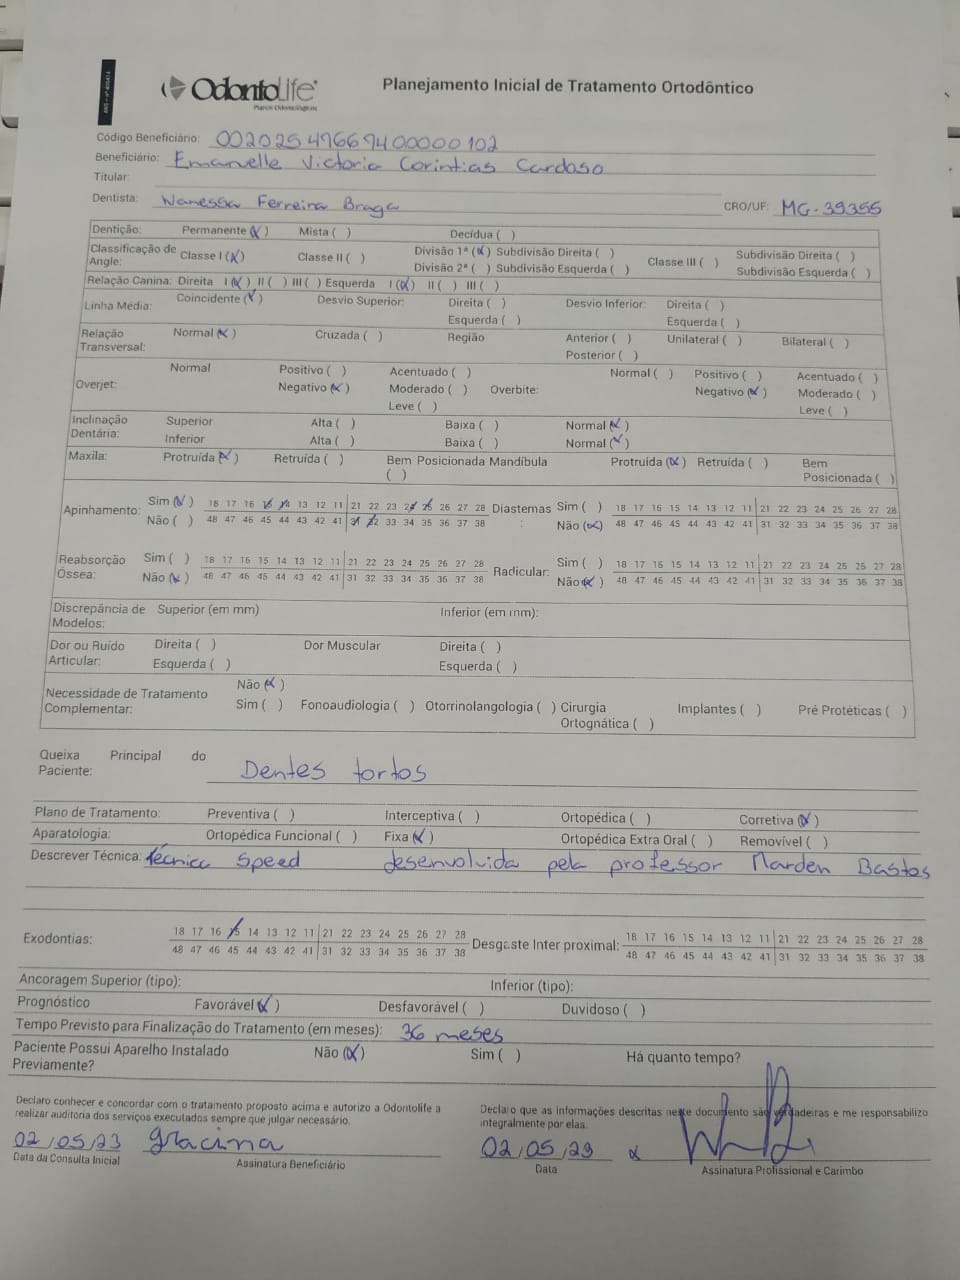 OdontoLife
Planos Odontológicos
Planejamento Inicial de Tratamento Ortodôntico
Código Beneficiário: 00202549667400000102
Beneficiário: Emanuelle Victoria Corintias Cardoso
Titular:
Dentista: Wanessa Ferreira Braga CRO/UF: MG-39355
Dentição: Permanente (x) Mista ( ) Decídua ( )
Classificação de Angle: Classe I (x) Classe II ( ) Divisão 1ª (x) Subdivisão Direita ( ) Classe III ( ) Subdivisão Direita ( )
Divisão 2ª ( ) Subdivisão Esquerda ( ) Subdivisão Esquerda ( )
Relação Canina: Direita I (x) II ( ) III ( ) Esquerda I (x) II ( ) III ( )
Linha Média: Coincidente (x) Desvio Superior: Direita ( ) Desvio Inferior: Direita ( )
Esquerda ( ) Esquerda ( )
Relação Transversal: Normal (x) Cruzada ( ) Região Anterior ( ) Unilateral ( ) Bilateral ( )
Posterior ( )
Overjet: Normal Positivo ( ) Acentuado ( ) Overbite: Normal ( ) Positivo ( ) Acentuado ( )
Negativo (x) Moderado ( ) Negativo (x) Moderado ( )
Leve ( ) Leve ( )
Inclinação Dentária: Superior Alta ( ) Baixa ( ) Normal (x)
Inferior Alta ( ) Baixa ( ) Normal (x)
Maxila: Protruída (x) Retruída ( ) Bem Posicionada ( ) Mandíbula Protruída (x) Retruída ( ) Bem Posicionada ( )
Apinhamento: Sim (x) 18 17 16 15 14 13 12 11 21 22 23 24 25 26 27 28 Diastemas : Sim ( ) 18 17 16 15 14 13 12 11 21 22 23 24 25 26 27 28
Não ( ) 48 47 46 45 44 43 42 41 31 32 33 34 35 36 37 38 Não (x) 48 47 46 45 44 43 42 41 31 32 33 34 35 36 37 38
Reabsorção Óssea: Sim ( ) 18 17 16 15 14 13 12 11 21 22 23 24 25 26 27 28 Radicular: Sim ( ) 18 17 16 15 14 13 12 11 21 22 23 24 25 26 27 28
Não (x) 48 47 46 45 44 43 42 41 31 32 33 34 35 36 37 38 Não (x) 48 47 46 45 44 43 42 41 31 32 33 34 35 36 37 38
Discrepância de Modelos: Superior (em mm) Inferior (em mm):
Dor ou Ruído Articular: Direita ( ) Dor Muscular Direita ( )
Esquerda ( ) Esquerda ( )
Necessidade de Tratamento Complementar: Não (x)
Sim ( ) Fonoaudiologia ( ) Otorrinolangologia ( ) Cirurgia Ortognática ( ) Implantes ( ) Pré Protéticas ( )
Queixa Principal do Paciente: Dentes tortos
Plano de Tratamento: Preventiva ( ) Interceptiva ( ) Ortopédica ( ) Corretiva (x)
Aparatologia: Ortopédica Funcional ( ) Fixa (x) Ortopédica Extra Oral ( ) Removível ( )
Descrever Técnica: técnica speed desenvolvida pela professor Marden Bastos
Exodontias: 18 17 16 15 14 13 12 11 21 22 23 24 25 26 27 28 Desgaste Inter proximal: 18 17 16 15 14 13 12 11 21 22 23 24 25 26 27 28
48 47 46 45 44 43 42 41 31 32 33 34 35 36 37 38 48 47 46 45 44 43 42 41 31 32 33 34 35 36 37 38
Ancoragem Superior (tipo): Inferior (tipo):
Prognóstico Favorável (x) Desfavorável ( ) Duvidoso ( )
Tempo Previsto para Finalização do Tratamento (em meses): 36 meses
Paciente Possui Aparelho Instalado Previamente? Não (x) Sim ( ) Há quanto tempo?
Declaro conhecer e concordar com o tratamento proposto acima e autorizo a Odontolife a realizar auditoria dos serviços executados sempre que julgar necessário.
Declaro que as informações descritas neste documento são verdadeiras e me responsabilizo integralmente por elas.
02/05/23 Gracina 02/05/23 x
Data da Consulta Inicial Assinatura Beneficiário Data Assinatura Profissional e Carimbo